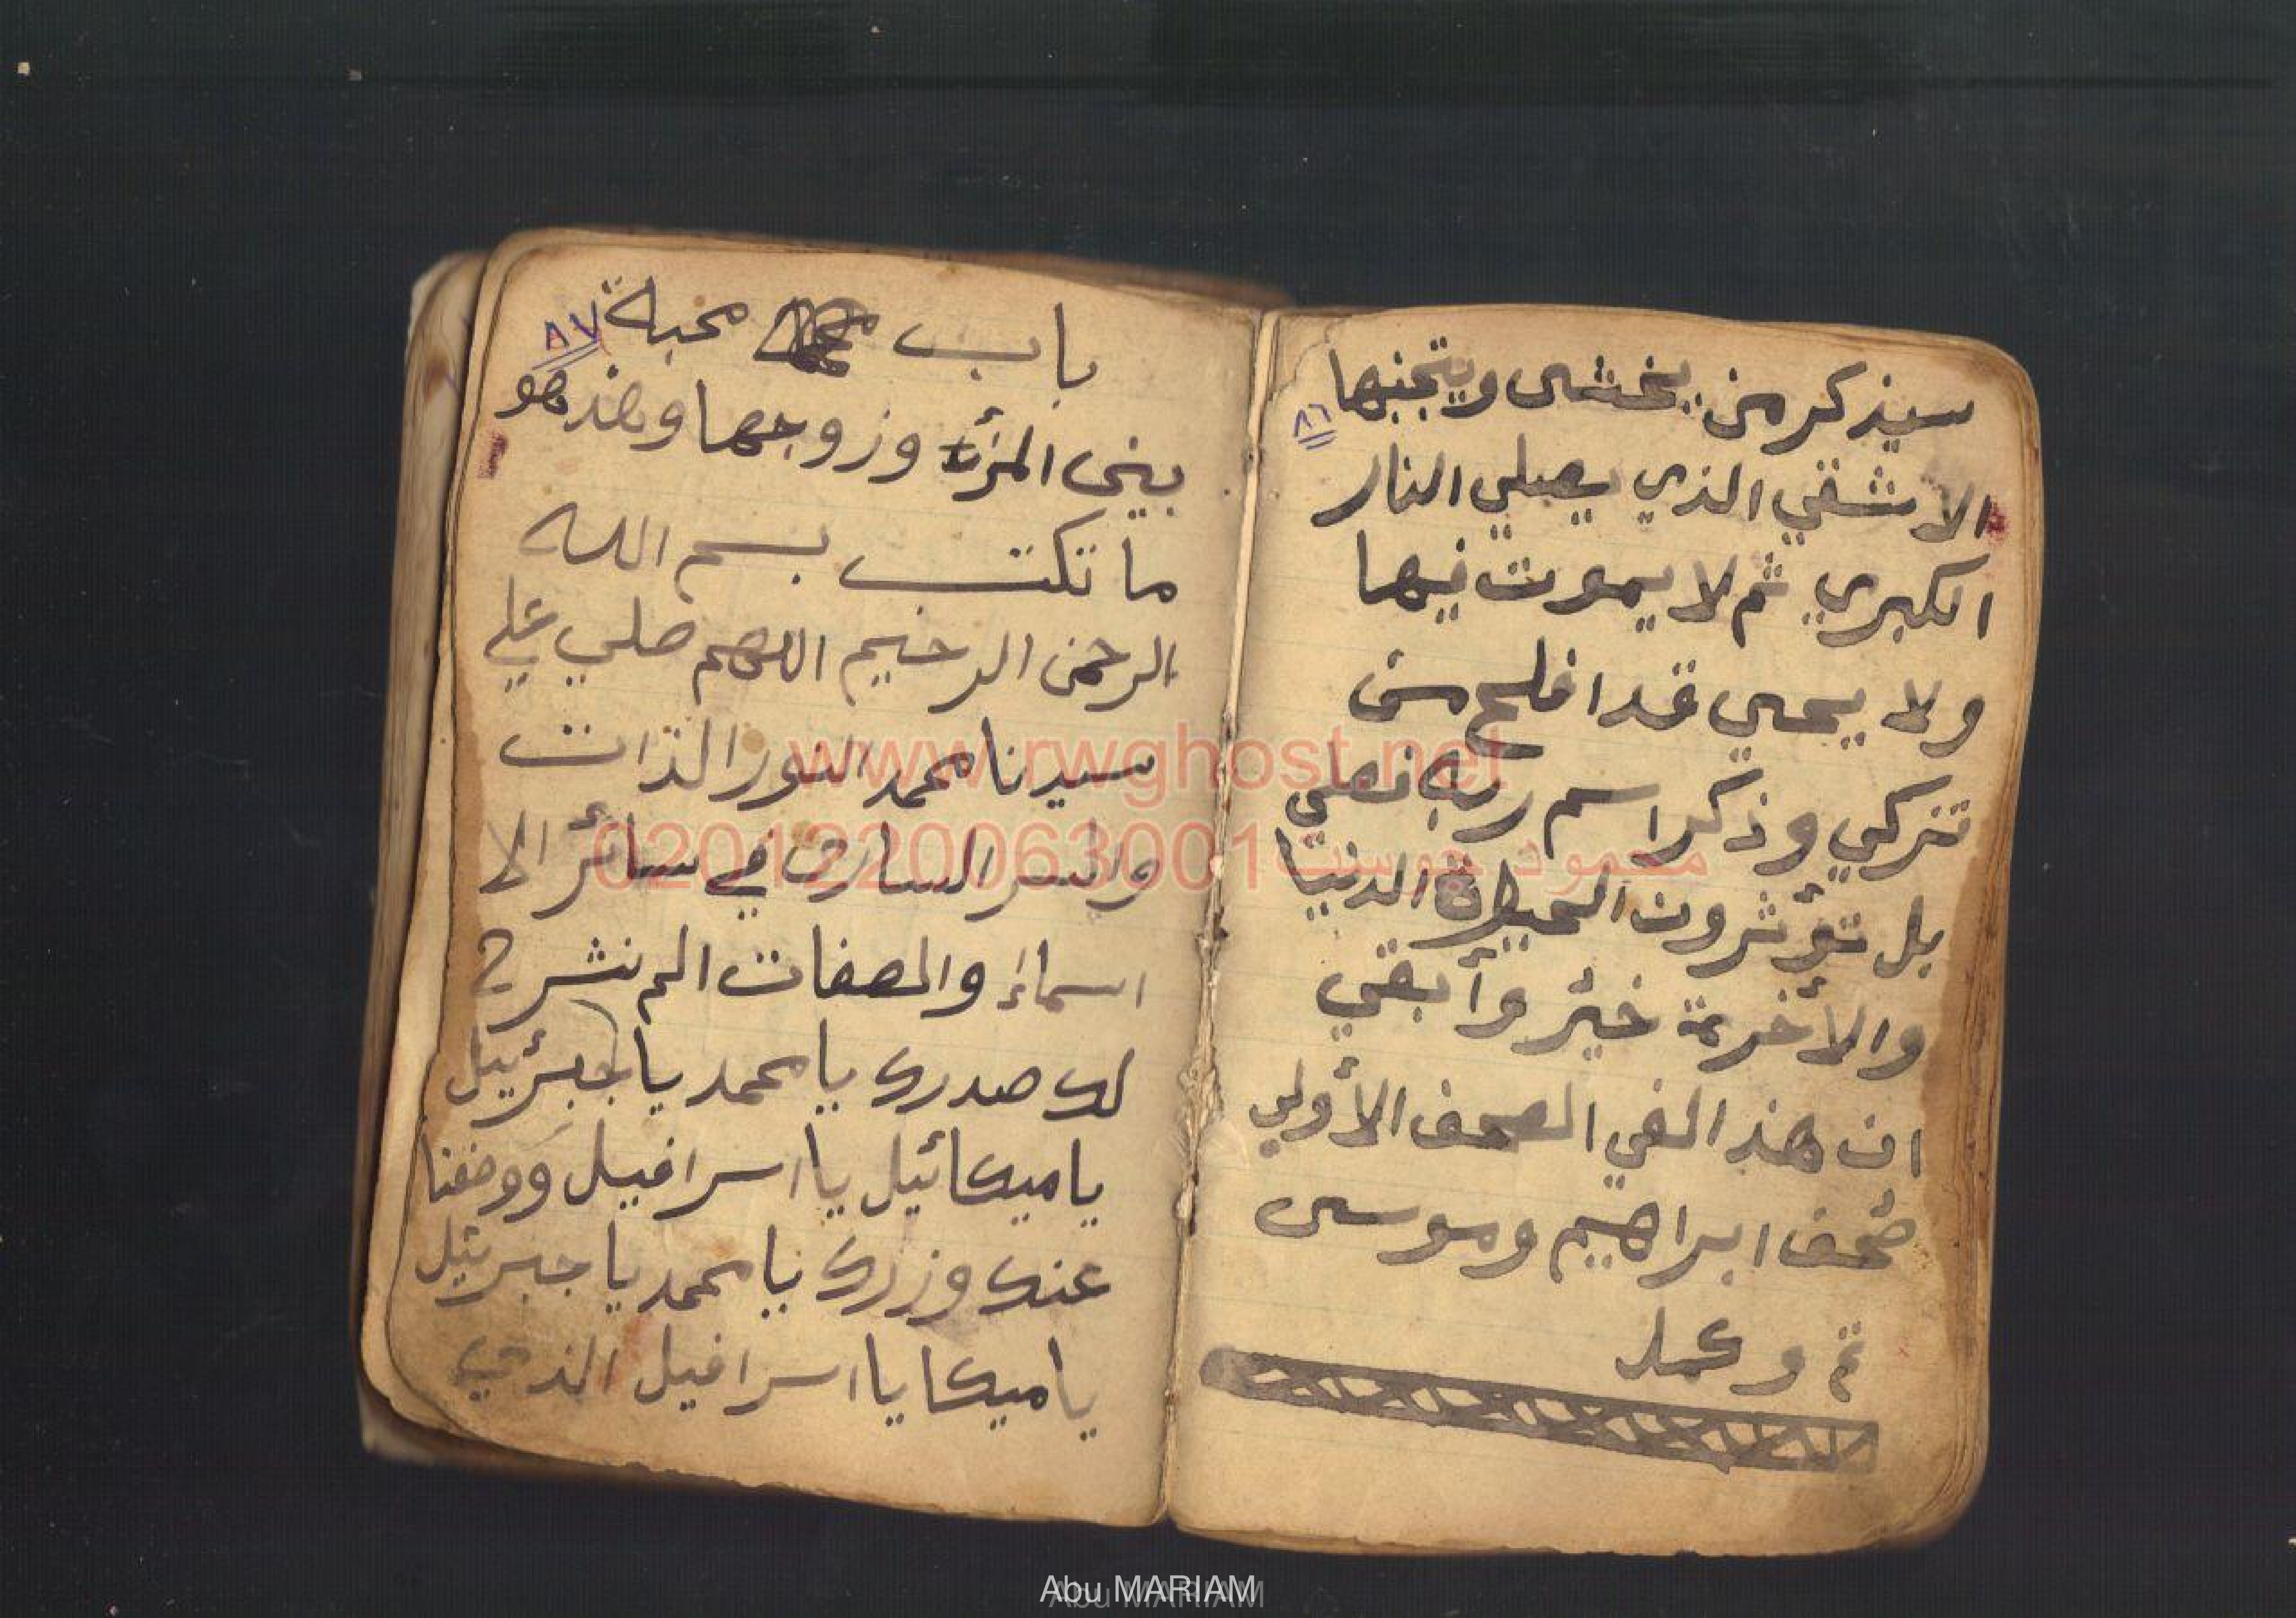 سيذكر من يخشى ويتجنبها
٨٦
الاشقي الذي يصلي النار
الكبري ثم لا يموت فيها
ولا يحيي قد افلح من
تزكي وذكر اسم ربه فصلي
بل تؤثرون الحياة الدنيا
والأخرة خير وأبقي
ان هذا لفي الصحف الأولي
صحف ابراهيم وموسى
تم وكمل
باب محبة
٨٧
بين المرأة وزوجها وهذهو
ما تكتب بسم الله
الرحمن الرحيم اللهم صلي علي
سيدنا محمد النور الذات
والسر السارى في سائر الا
اسماء والصفات الم نشرح
لك صدرك يا محمد يا جبرئيل
يا ميكائيل يا اسرافيل ووضعنا
عنك وزرك يا محمد يا جبرئيل
يا ميكا يا اسرافيل الذي
www.rwghost.net
محمود جوست 0201220063001
Abu MARIAM